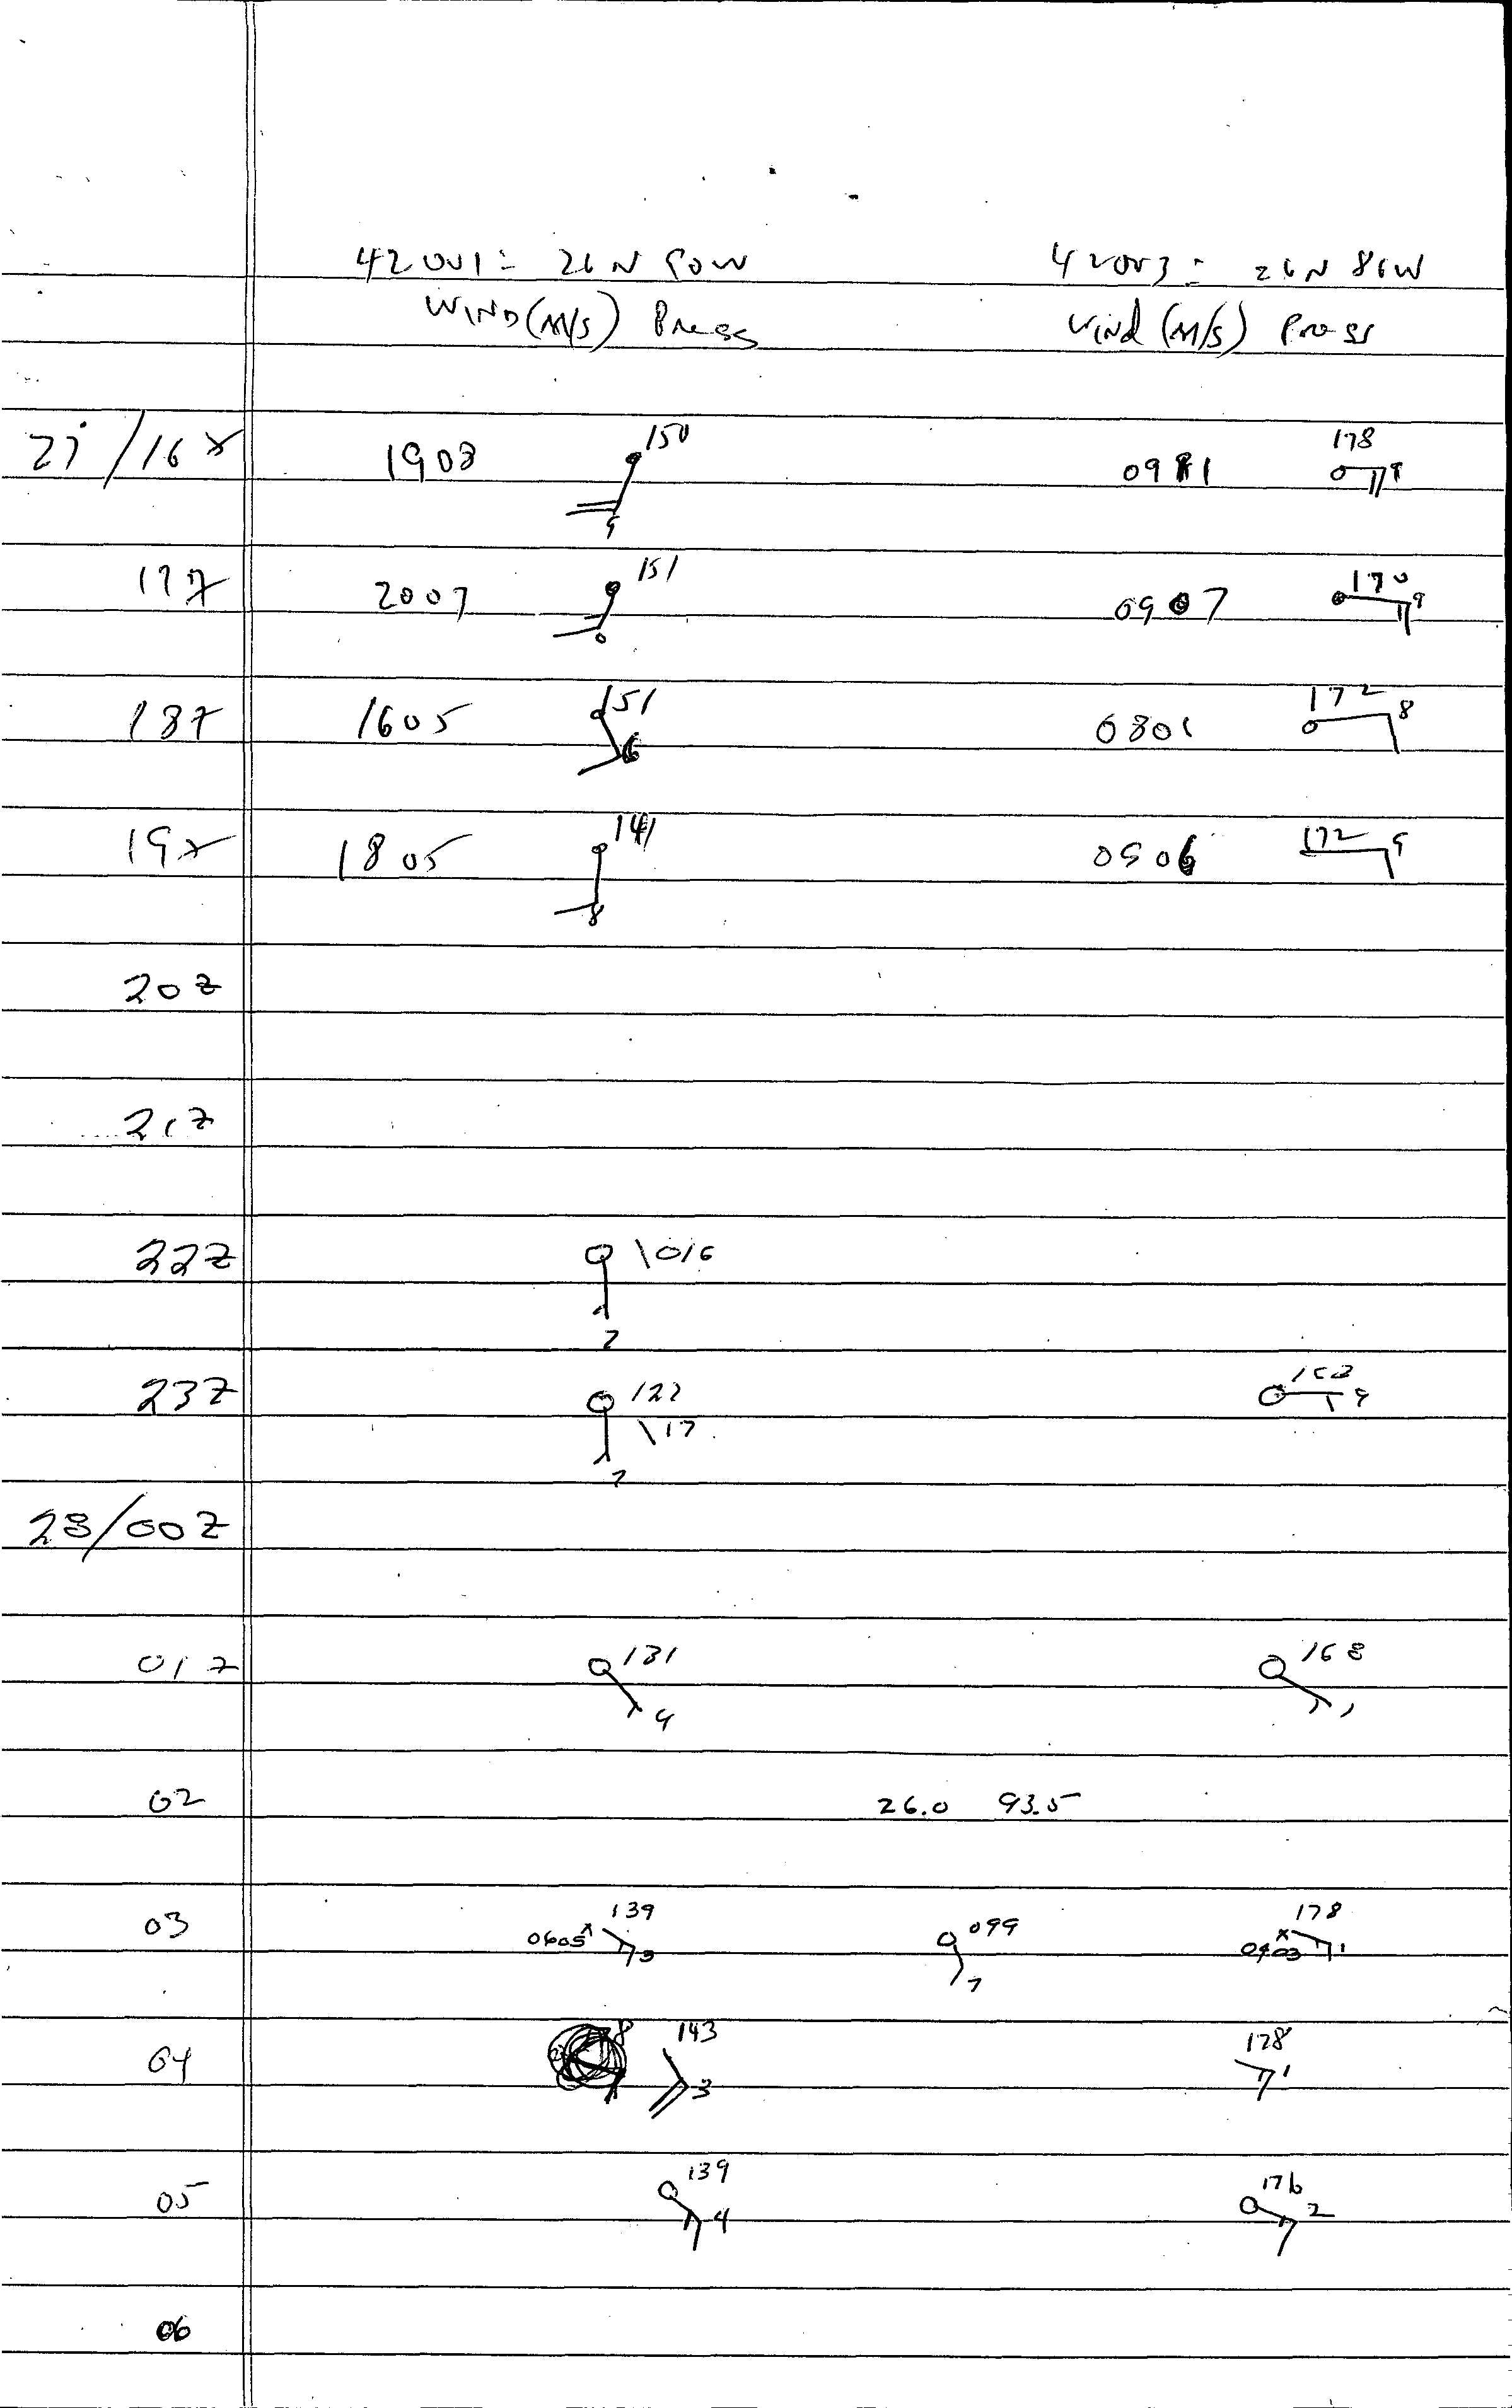 42001= 26N 90W 42003= 26N 86W
WIND(M/S) Press Wind (M/S) Press
27/16Z 1908 150 9 178 9
17Z 2007 151 0 0907 170 9
18Z 1605 151 6 0801 172 8
19Z 1805 141 8 0906 172 9
20Z
21Z
22Z \016 2
23Z 122 \17 9
28/00Z
01Z 131 4 168
02 26.0 93.5
03 0605 139 3 099 7 178 1
04 143 3 178 1
05 139 4 176 2
06